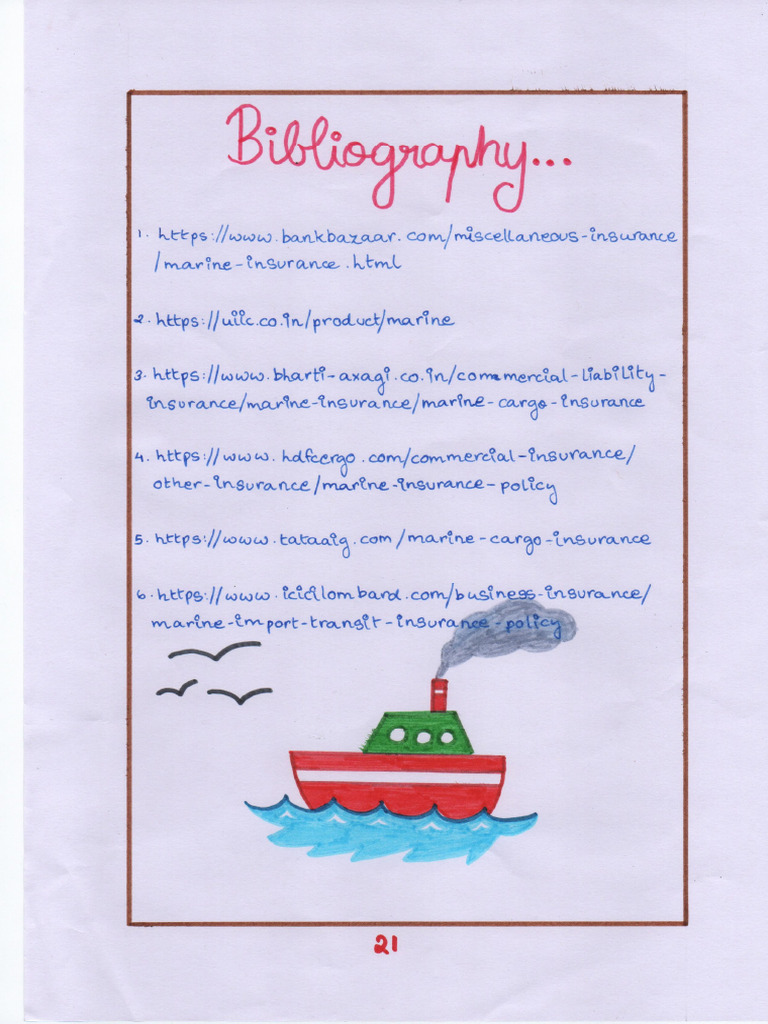 Bibliography...
1. https://www.bankbazaar.com/miscellaneous-insurance
/marine-insurance.html
2. https://uiic.co.in/product/marine
3. https://www.bharti-axagi.co.in/commercial-liability-
insurance/marine-insurance/marine-cargo-insurance
4. https://www.hdfcergo.com/commercial-insurance/
other-insurance/marine-insurance-policy
5. https://www.tataaig.com/marine-cargo-insurance
6. https://www.icicilombard.com/business-insurance/
marine-import-transit-insurance-policy
21